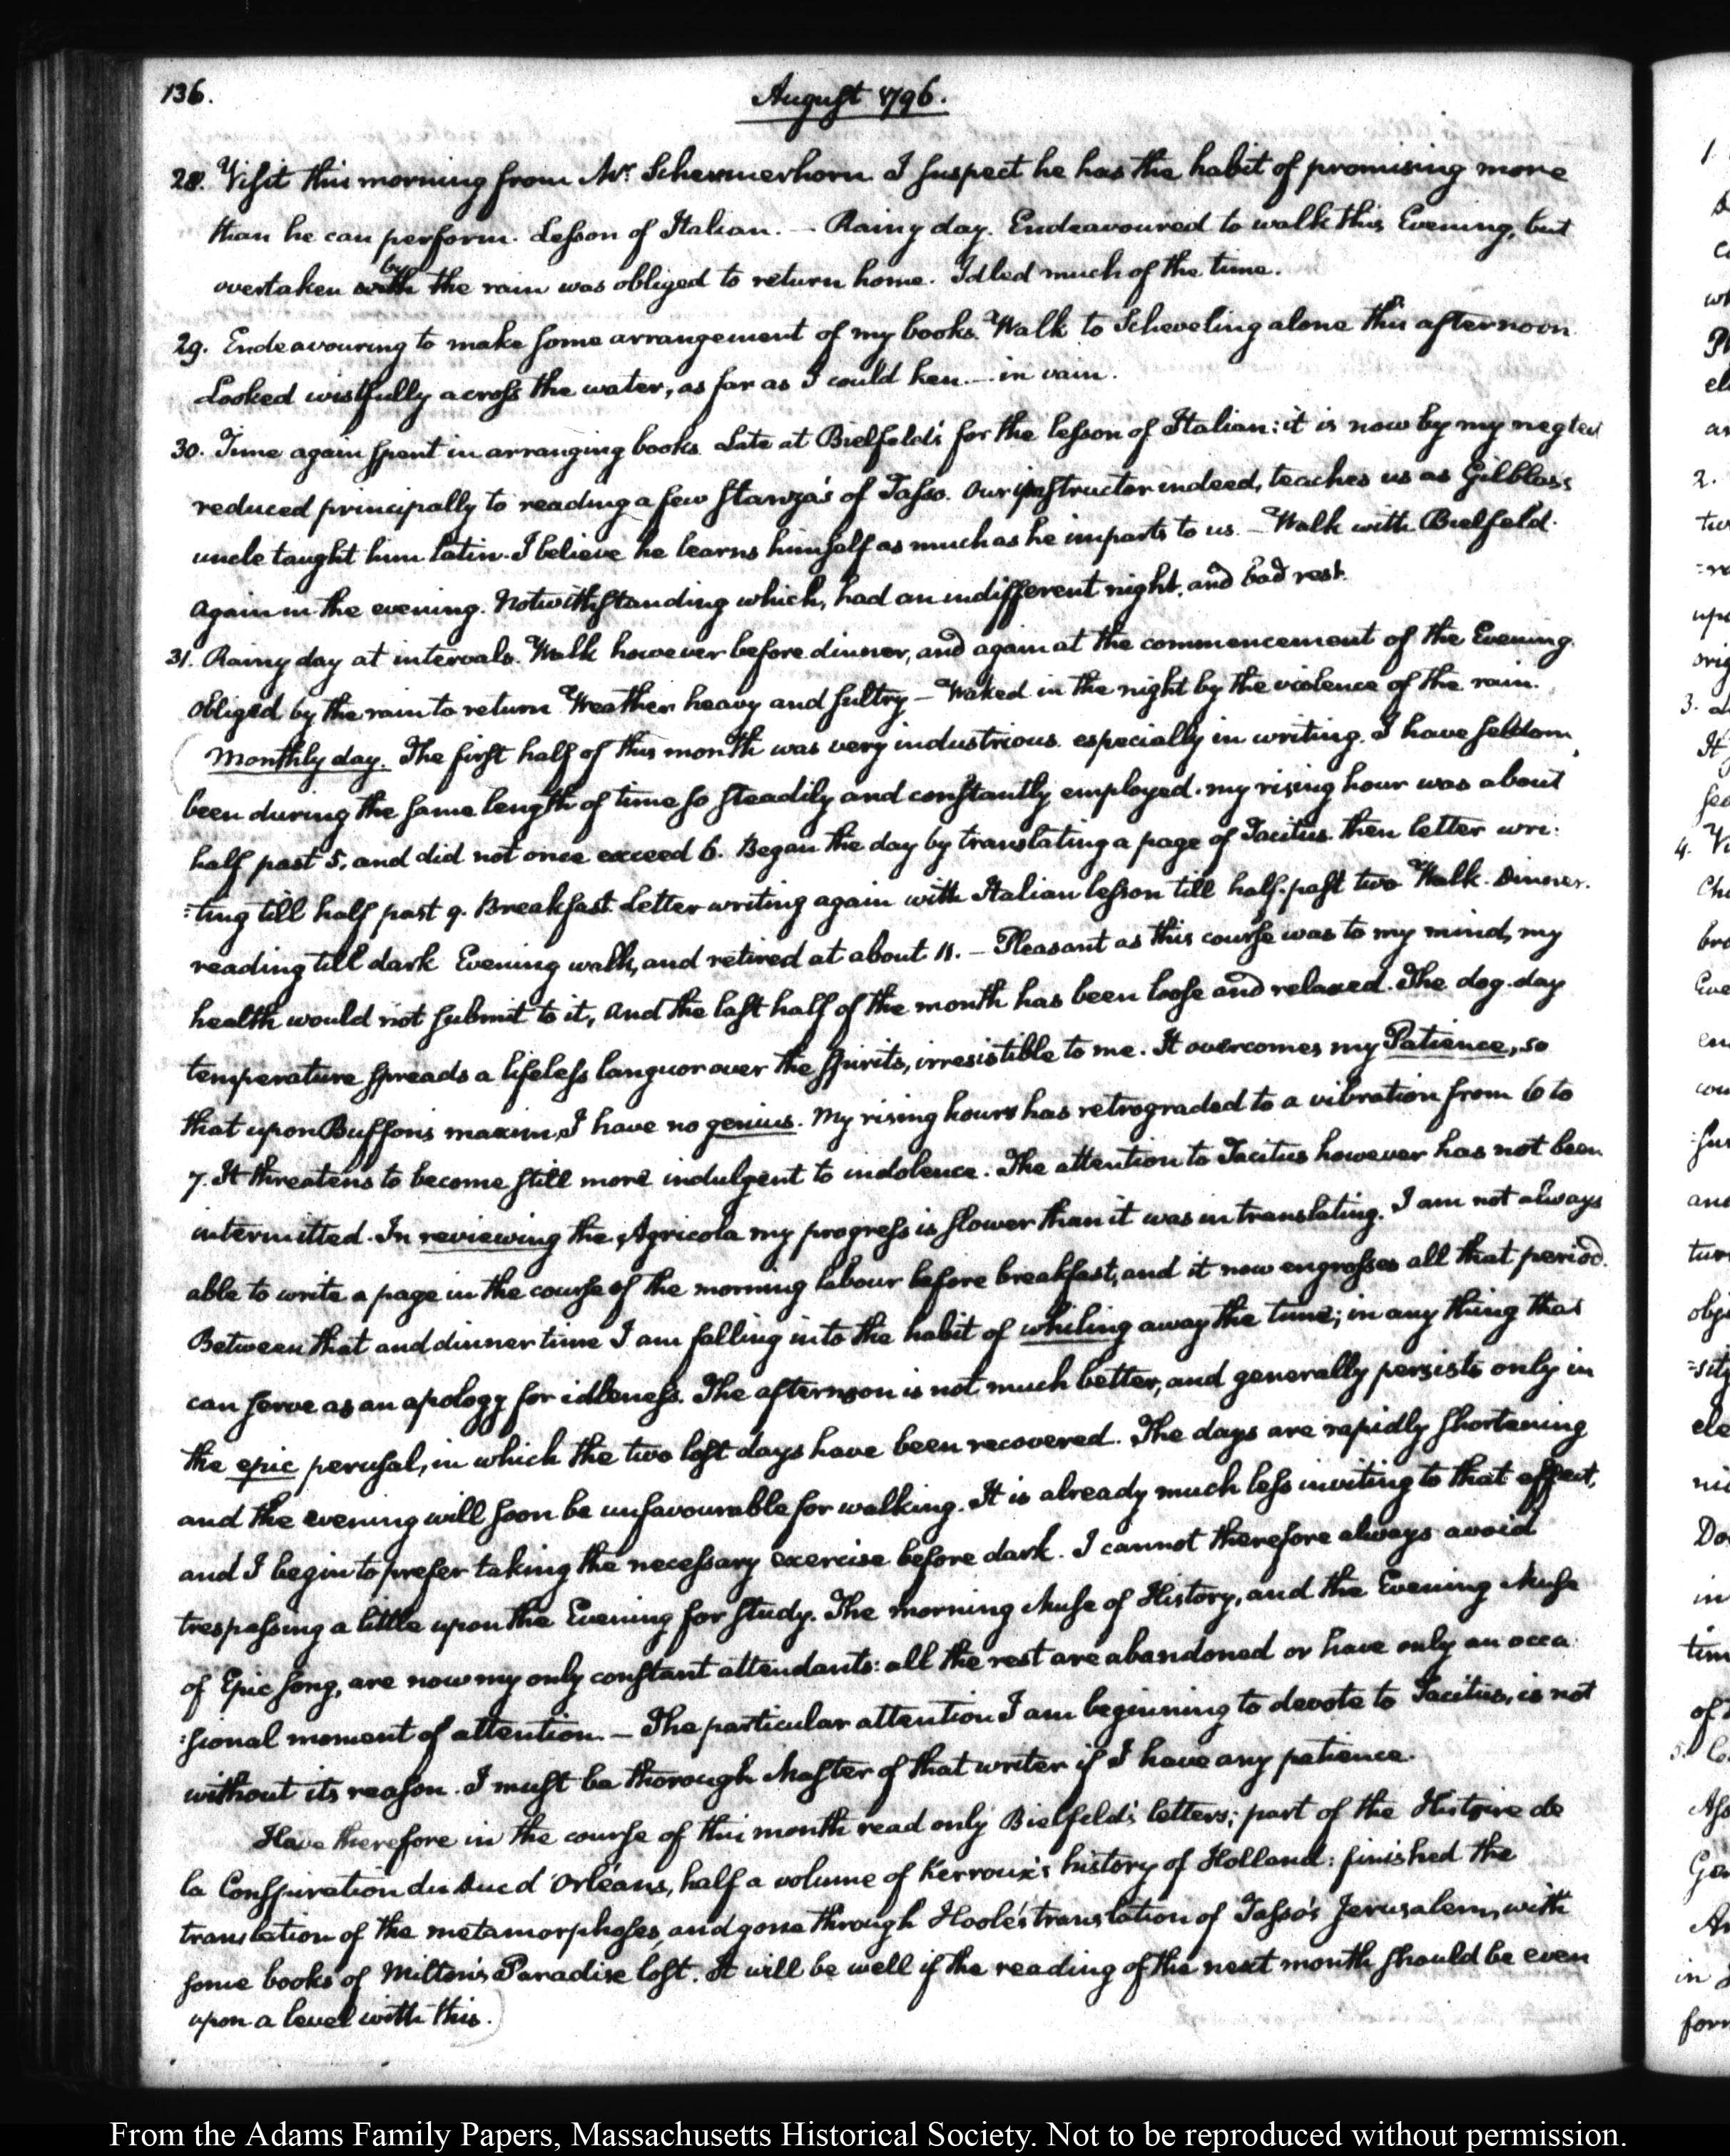 136.
August 1796.
28. Visit this morning from Mr. Schermerhorn I suspect he has the habit of promising more
than he can perform. Lesson of Italian. — Rainy day. Endeavoured to walk this Evening, but
by
overtaken with the rain was obliged to return home. Idled much of the time.
29. Endeavouring to make some arrangement of my books. Walk to Scheveling alone this afternoon
Looked wistfully across the water, as far as I could ken. — in vain.
30. Time again spent in arranging books. Late at Bielfeld's for the lesson of Italian: it is now by my neglect
reduced principally to reading a few stanza's of Tasso. Our instructor indeed, teaches us as Gilblas's
uncle taught him latin. I believe he learns himself as much as he imparts to us. — Walk with Bielfeld.
again in the evening. Notwithstanding which, had an indifferent night, and bad rest.
31. Rainy day at intervals. Walk however before dinner, and again at the commencement of the Evening.
obliged by the rain to return Weather heavy and sultry — Waked in the night by the violence of the rain.
Monthly day. The first half of this month was very industrious. especially in writing. I have seldom
been during the same length of time so steadily and constantly employed. my rising hour was about
half past 5. and did not once exceed 6. Began the day by translating a page of Tacitus. then letter wri:
:ting till half past 9. Breakfast. Letter writing again with Italian lesson till half past two Walk. Dinner.
reading till dark Evening walk, and retired at about 11. — Pleasant as this course was to my mind, my
health would not submit to it, and the last half of the month has been loose and relaxed. The dog-day
temperature spreads a lifeless languor over the spirits, irresistible to me. It overcomes my Patience, so
that upon Buffon's maxim, I have no genius. My rising hours has retrograded to a vibration from 6 to
7. It threatens to become still more indulgent to indolence. The attention to Tacitus however has not been
intermitted. In reviewing the Agricola my progress is slower than it was in translating. I am not always
able to write a page in the course of the morning labour before breakfast, and it now engrosses all that period.
Between that and dinner time I am falling into the habit of whiling away the time; in any thing that
can serve as an apology for idleness. The afternoon is not much better, and generally persists only in
the epic perusal, in which the two lost days have been recovered. The days are rapidly shortening
and the evening will soon be unfavourable for walking. It is already much less inviting to that effect,
and I begin to prefer taking the necessary exercise before dark. I cannot therefore always avoid
trespassing a little upon the Evening for study. The morning Muse of History, and the Evening Muse
of Epic song, are now my only constant attendants: all the rest are abandoned or have only an occa:
:sional moment of attention. — The particular attention I am beginning to devote to Tacitus, is not
without its reason. I must be thorough Master of that writer if I have any patience.
Have therefore in the course of this month read only Bielfeld's letters; part of the Histoire de
la Conspiration du Duc d'Orléans, half a volume of Kerroux's history of Holland: finished the
translation of the metamorphoses, and gone through Hoole's translation of Tasso's Jerusalem, with
some books of Milton's Paradise lost. It will be well if the reading of the next month should be even
upon a level with this.
From the Adams Family Papers, Massachusetts Historical Society. Not to be reproduced without permission.